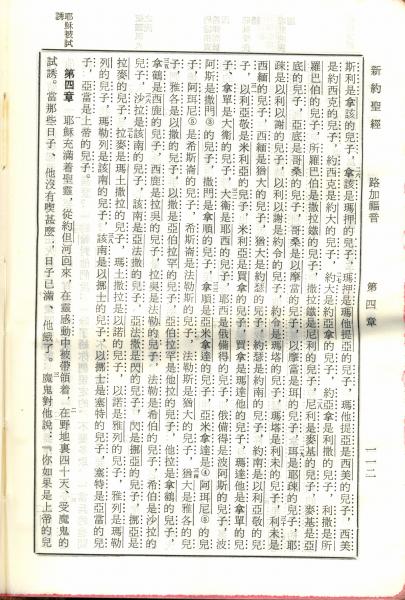 新約聖經　路加福音　第四章　一一二
斯利是拿該的兒子，拿該是瑪押的兒子，瑪押是瑪他提亞的兒子，瑪他提亞是西美的兒子，西美
是約西克的兒子，約西克是約大的兒子，約大是約亞拿的兒子，約亞拿是利撒的兒子，利撒是所
羅巴伯的兒子，所羅巴伯是撒拉鐵的兒子，撒拉鐵是尼利的兒子，尼利是麥基的兒子，麥基是亞
底的兒子，亞底是哥桑的兒子，哥桑是以摩當的兒子，以摩當是珥的兒子，珥是耶疎的兒子，耶
疎是以利以謝的兒子，以利以謝是約令的兒子，約令是瑪塔的兒子，瑪塔是利未的兒子，利未是
西緬的兒子，西緬是猶大的兒子，猶大是約瑟的兒子，約瑟是約南的兒子，約南是以利亞敬的兒
子，以利亞敬是米利亞的兒子，米利亞是買拿的兒子，買拿是瑪達他的兒子，瑪達他是拿單的兒
子，拿單是大衛的兒子，大衛是耶西的兒子，耶西是俄備得的兒子，俄備得是波阿斯的兒子，波
阿斯是撒門③的兒子，撒門是拿順的兒子，拿順是亞米拿達的兒子，亞米拿達是④阿珥尼⑤的兒
子，阿珥尼⑤是希斯崙的兒子，希斯崙是法勒斯的兒子，法勒斯是猶大的兒子，猶大是雅各的兒
子，雅各是以撒的兒子，以撒是亞伯拉罕的兒子，亞伯拉罕是他拉的兒子，他拉是拿鶴的兒子，
拿鶴是西鹿的兒子，西鹿是拉吳的兒子，拉吳是法勒的兒子，法勒是希伯的兒子，希伯是沙拉的
兒子，沙拉是該南的兒子，該南是亞法撒的兒子，亞法撒是閃的兒子，閃是挪亞的兒子，挪亞是
拉麥的兒子，拉麥是瑪土撒拉的兒子，瑪土撒拉是以諾的兒子，以諾是雅列的兒子，雅列是瑪勒
列的兒子，瑪勒列是該南的兒子，該南是以挪士的兒子，以挪士是塞特的兒子，塞特是亞當的兒
子，亞當是上帝的兒子。
第四章　耶穌充滿着聖靈，從約但河回來，在靈感動中被帶領着，在野地裏四十天、受魔鬼的
試誘。當那些日子、他沒有喫甚麼，日子已滿、他餓了。魔鬼對他說：「你如果是上帝的兒
耶穌被試誘